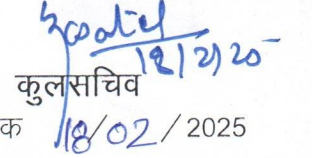 18/2/25
कुलसचिव
क 18/02/2025